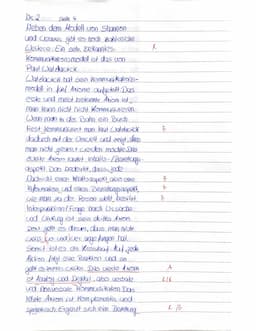 Nr. 2 Seite 4
Neben dem Modell von Shannon
und Weaver gibt es noch zahlreiche
Weitere. Ein sehr bekanntes R
Kommunikationsmodell ist das von
Paul Watzlawick.
Watzlawick hat sein Kommunikations-
modell in fünf Axiome aufgestellt. Das
erste und meist bekannte Axiom ist,
man kann nicht nicht kommunizieren.
Wenn man in der Bahn ein Buch
liest kommuniziert man laut Watzlawick Z
dadurch mit der Umwelt und zeigt, dass
man nicht gestört werden möchte. Das
zweite Axiom lautet Inhalts-/Beziehungs-
aspekt. Das bedeutet, dass jede
einen Inhaltsaspekt, also eine
Information, und einen Beziehungsaspekt, Z
wie man zu der Person steht, besitzt. Z
Interpunktion/Frage nach Ursache
und Wirkung ist sein drittes Axiom.
Dort geht es darum, dass man nicht
weiß, wo und wer angefangen hat.
Somit ist es ein Kreislauf. Auf jede
Aktion folgt eine Reaktion und so
geht es immer weiter. Das vierte Axiom A
ist Analog und Digital, also verbale
und nonverbale Kommunikation. Das
fünfte Axiom ist Komplementär und
symmetrisch. Ergänzt sich ihre Beziehung